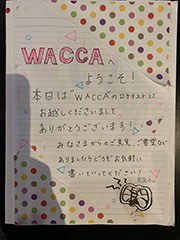 WACCAへ
ようこそ！
本日は"WACCA"のロケテストに
お越しくださいまして
ありがとうございます！
みなさまからのご意見、ご要望など
ありましたらどうぞお気軽に
書いていってください！